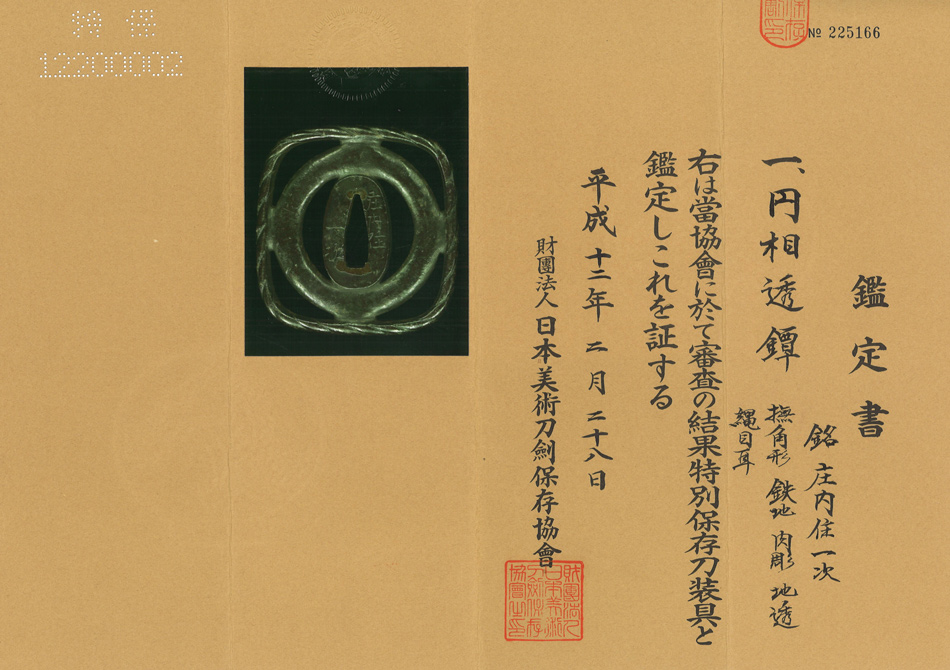 鑑定書
一、円相透鐔
銘 庄内住一次
撫角形 鉄地 肉彫 地透
縄目耳
右は當協會に於て審査の結果特別保存刀装具と
鑑定しこれを証する
平成十二年二月二十八日
財團法人 日本美術刀劍保存協會
№ 225166
特保
12200002